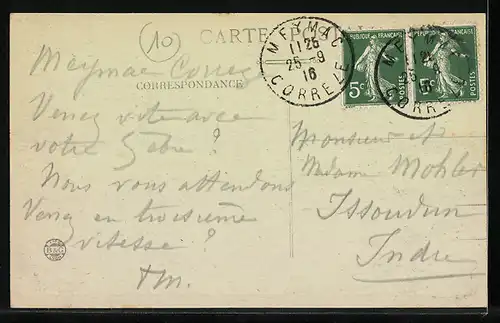 10
CARTE POSTALE
MEYMAC
11 25
25 - 9
16
CORREZE
REPUBLIQUE FRANÇAISE
5c
POSTES
REPUBLIQUE FRANÇAISE
5c
POSTES
CORRESPONDANCE
Meymac Correze
Venez vite avec
votre
Nous vous attendons
Venez en troisième
vitesse ?
B&G
Monsieur et
Madame Mohler
Issoudun
Indre